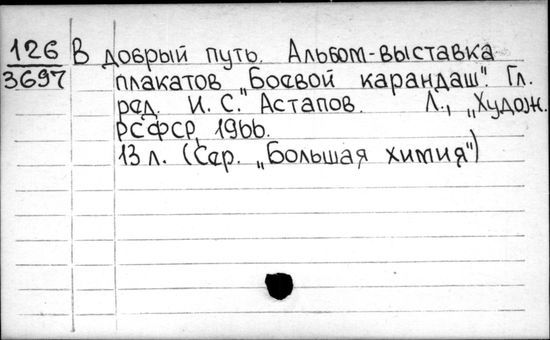 126 В добрый путь. Альбом-выставка
3697 плакатов „Боевой карандаш". Гл.
ред. И. С. Астапов. Л., „Худож.
РСФСР, 1966.
13 л. (Сер. „Большая химия")